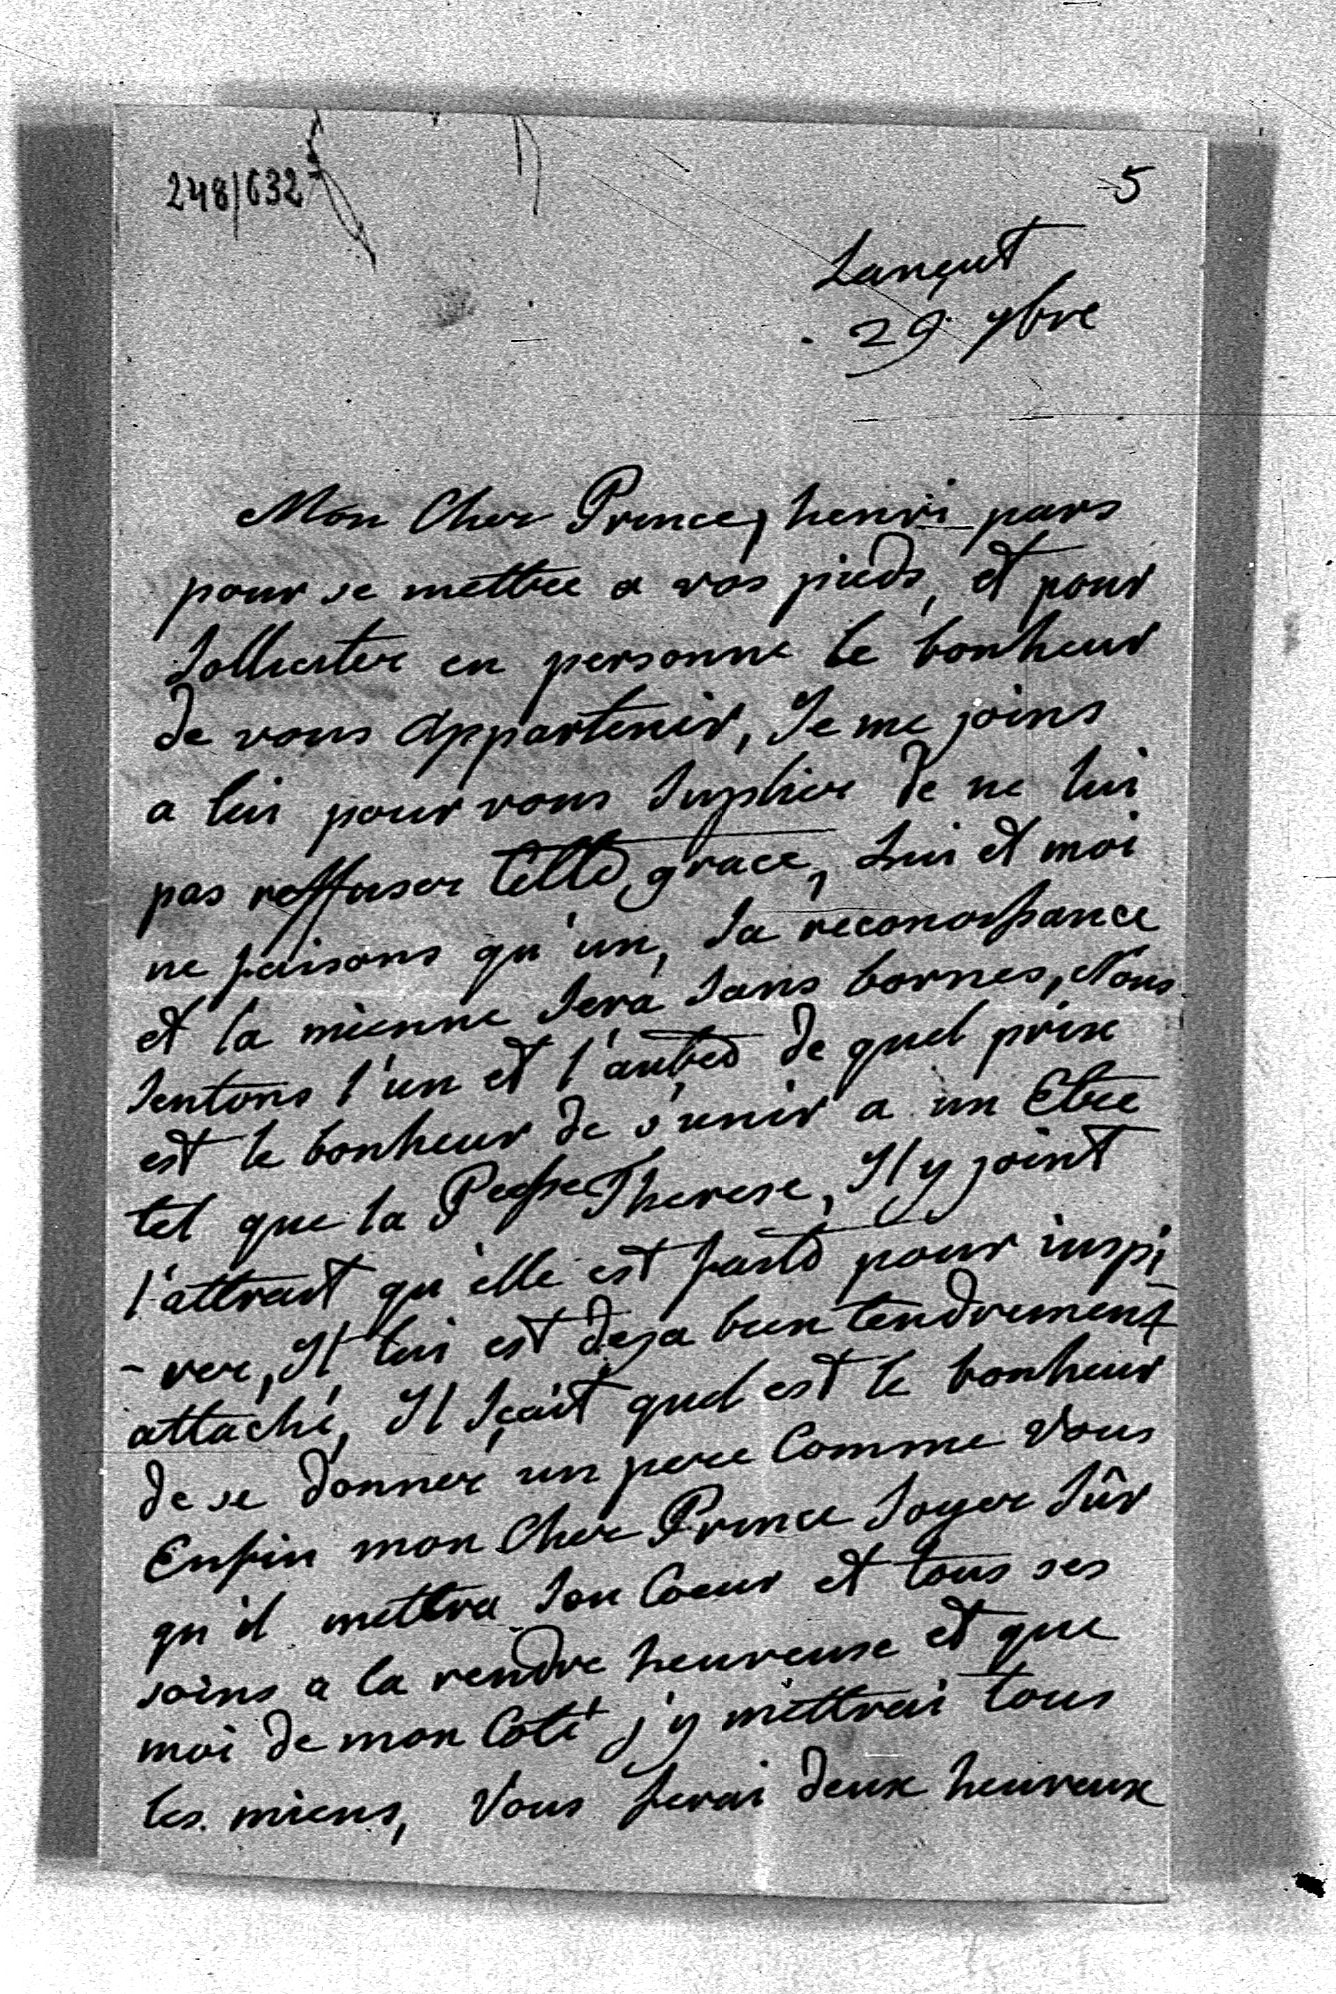 248/632
5
Lançut
29. 9bre
Mon Cher Prince, henri pars
pour se mettre a vos pieds, et pour
Solliciter en personne le bonheur
de vous appartenir, Je me joins
a lui pour vous Suplier de ne lui
pas reffuser Cette grace, Lui et moi
ne faisons qu'un, Sa reconoissance
et la mienne Sera Sans bornes, Nous
Sentons l'un et l'autre de quel prix
est le bonheur de s'unir a un Etre
tel que la Pcesse Therese, Il y joint
l'attrait qu'elle est faite pour inspi
-rer, Il lui est deja bien tendrement
attaché, Il Sçait quel est le bonheur
de se donner un pere Comme Vous
Enfin mon Cher Prince Soyer Sûr
qu'il mettra Son Coeur et tous ses
soins a la rendre heureuse et que
moi de mon Coté j'y mettrai tous
les miens, Vous ferai deux heureux